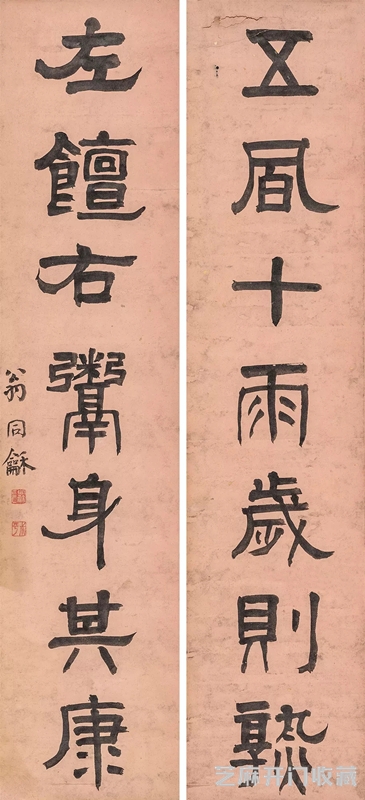 五風十雨歲則熟
左饘右鬻身其康
翁同龢
芝麻开门收藏